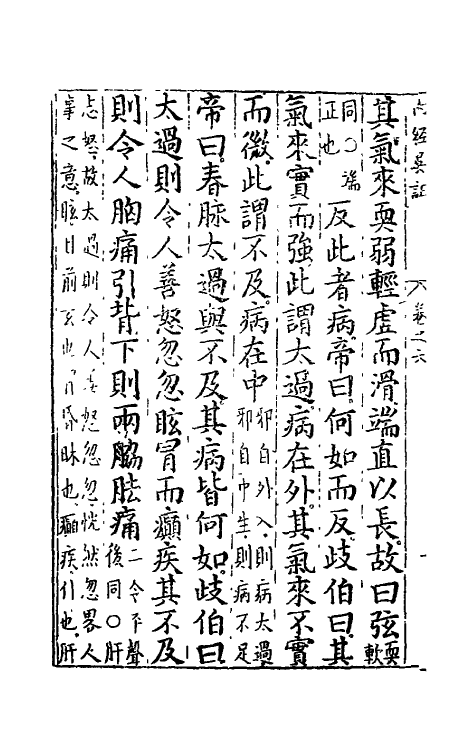 內經吳註 卷之六
其氣來耎弱輕虛而滑端直以長故曰弦耎軟
同〇端正也反此者病帝曰何如而反歧伯曰其
氣來實而強此謂太過病在外其氣來不實
而微此謂不及病在中邪自外入則病太過邪自中生則病不足
帝曰春脉太過與不及其病皆何如歧伯曰
太過則令人善怒忽忽眩冒而癲疾其不及
則令人胸痛引背下則兩脇胠痛二令平聲後同〇肝
志怒故太過則令人善怒忽忽恍然忽畧人
事之意眩目前玄也冒昏昧也癲疾仆也肝